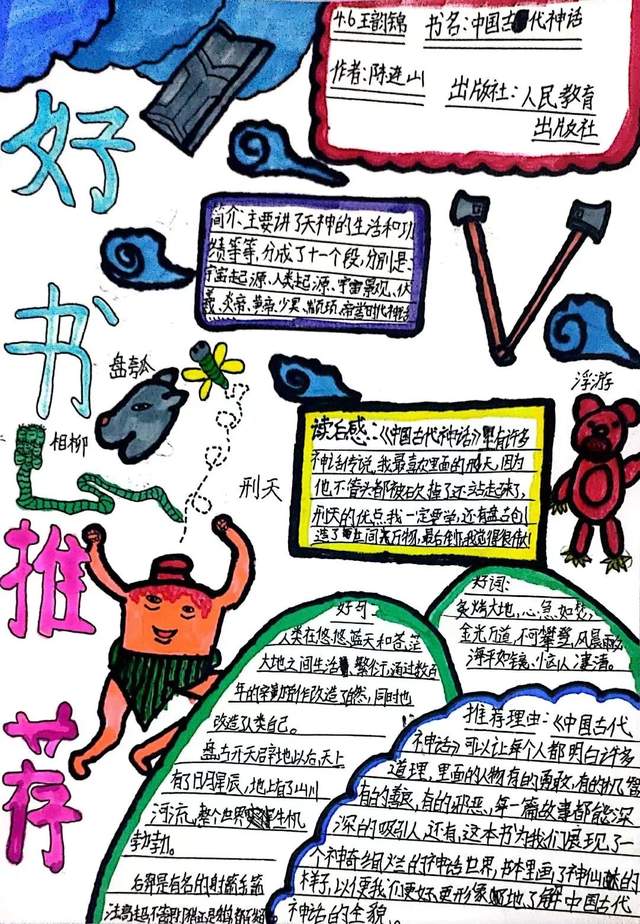 好书推荐
4.6 王韵锦 书名:中国古代神话
作者:陈连山 出版社:人民教育
出版社
简介:主要讲了天神的生活和功
绩等等,分成了十一个段,分别是:
宇宙起源、人类起源、宇宙景观、伏
羲、炎帝、黄帝、少昊、颛顼、帝喾时代神话
盘瓠
相柳
刑天
浮游
读后感:《中国古代神话》里有许多
神话传说,我最喜欢里面的刑天,因为
他不管头都被砍掉了还站起来了,
刑天的优点我一定要学,还有盘古创
造了世间万物,最后
好词:
炙烤大地,心急如焚,
金光万道,不可攀登,风晨雨
海平如镜,恼人凄清。
好句
人类在悠悠蓝天和苍茫
大地之间生活、繁衍,通过数百
年的辛勤劳作改造了自然,同时也
改造了人类自己。
盘古开天辟地以后,天上
有了日月星辰,地上有了山川
河流,整个世界变得生机
勃勃。
后羿是有名的射箭
推荐理由:《中国古代
神话》可以让每个人都明白许多
道理,里面的人物有的勇敢,有的机智
有的善良,有的邪恶,每一篇故事都能深
深的吸引人,还有,这本书为我们展现了一
个神奇绚烂的神话世界,书本里画了神仙的
样子,以便我们更好更形象地了解中国古代
神话的全貌